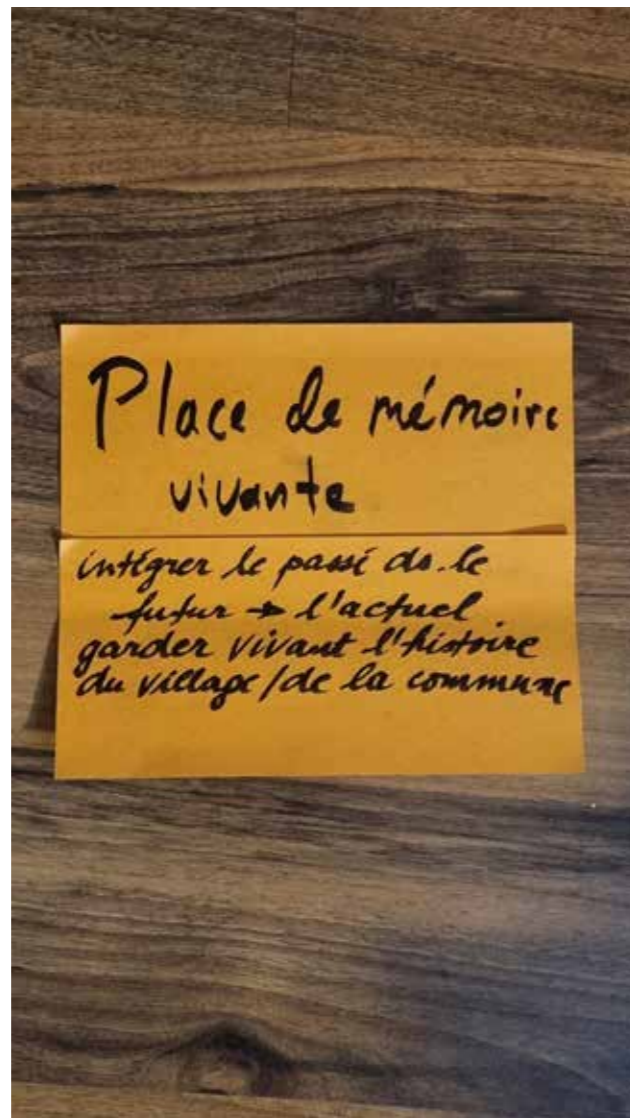 Place de mémoire
vivante
intégrer le passé ds. le
futur → l'actuel
garder vivant l'histoire
du village/de la commune